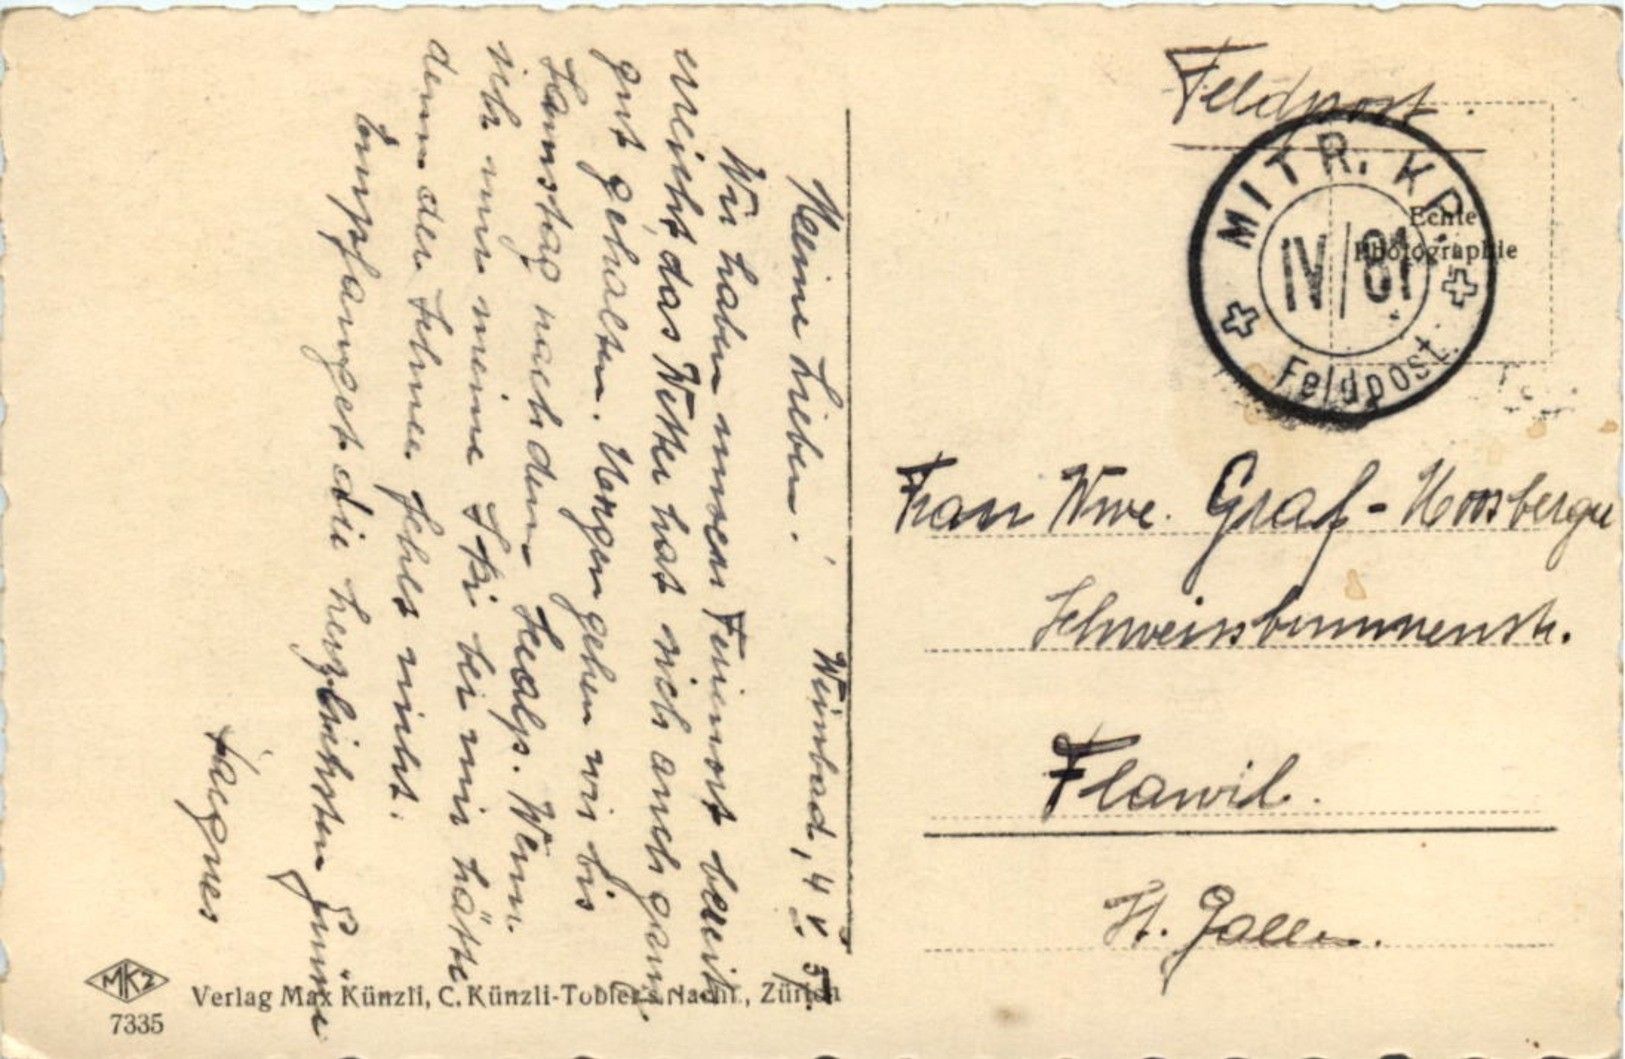 Feldpost.
MITR. KP.
IV/81
Feldpost.
Echte
Photographie
Frau Wwe. Graf-Moosberger
Schweissbrunnenstr.
Flawil.
St. Gallen.
Meine Lieben!
Weissbad, 4 V. 51.
Wir haben unsern Ferienort bereits
erreicht, das Wetter hat sich auch ganz
gut gehalten. Morgen gehen wir bis
Samstag nach dem Seealp. Wenn
ich nur meine Ski bei mir hätte
denn der Schnee fehlt nicht.
Empfanget die herzlichsten Grüsse
MKZ
7335
Verlag Max Künzli, C. Künzli-Tobler's Nachf., Zürich